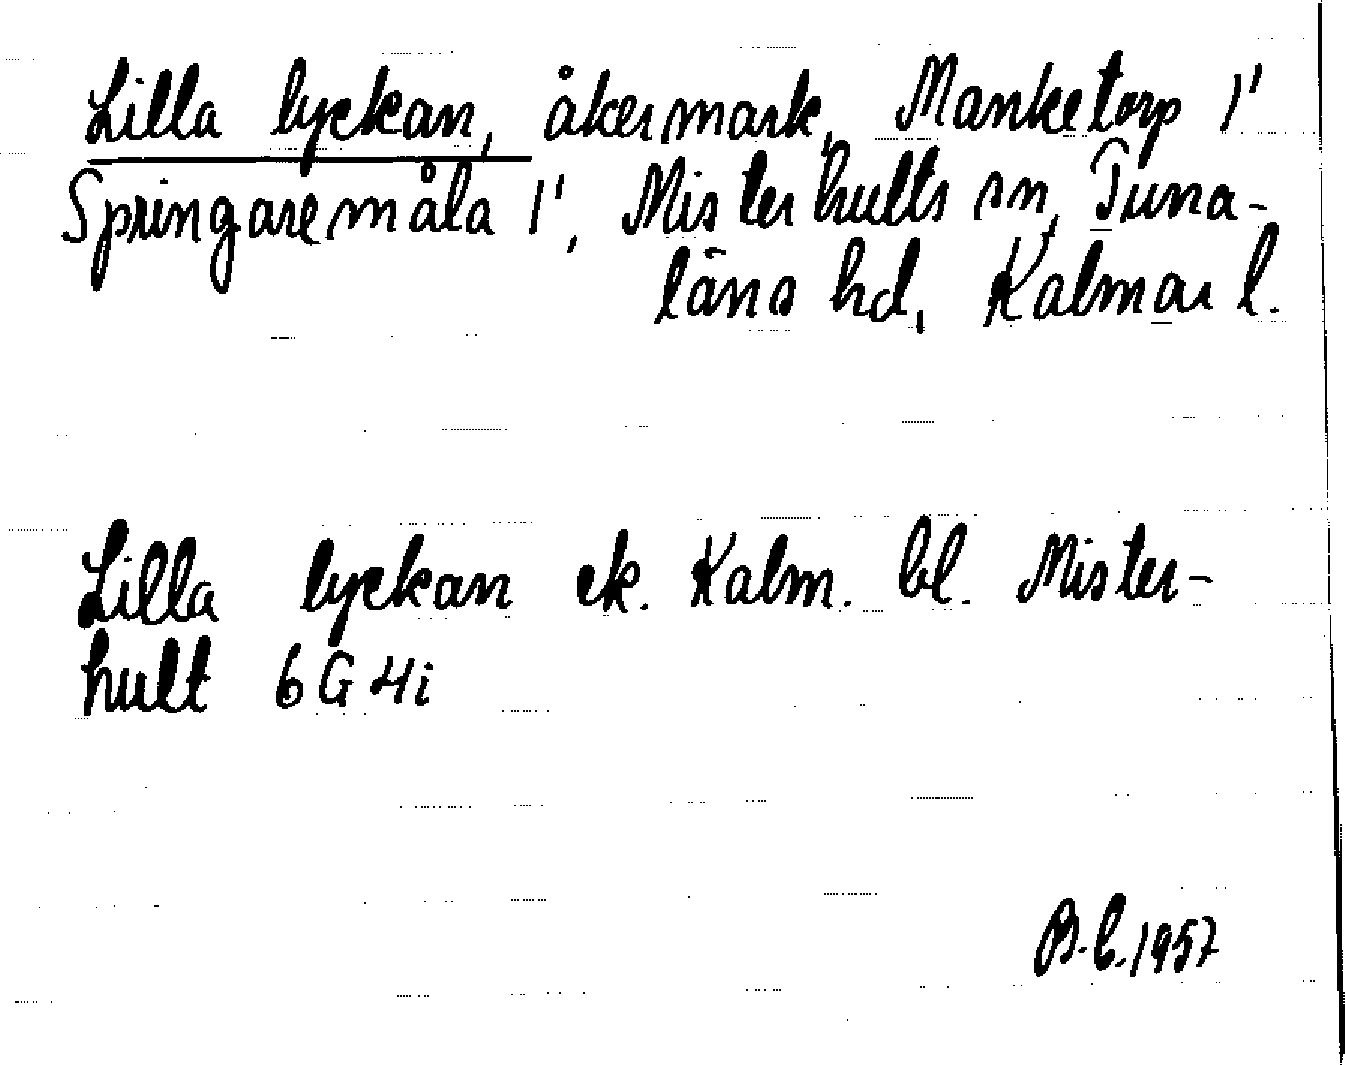 Lilla lyckan, åkermark, Manketorp 1¹
Springaremåla 1¹, Misterhults sn, Tuna-
läns hd, Kalmar l.
Lilla lyckan ek. Kalm. bl. Mister-
hult 6G 4i
B.E. 1957